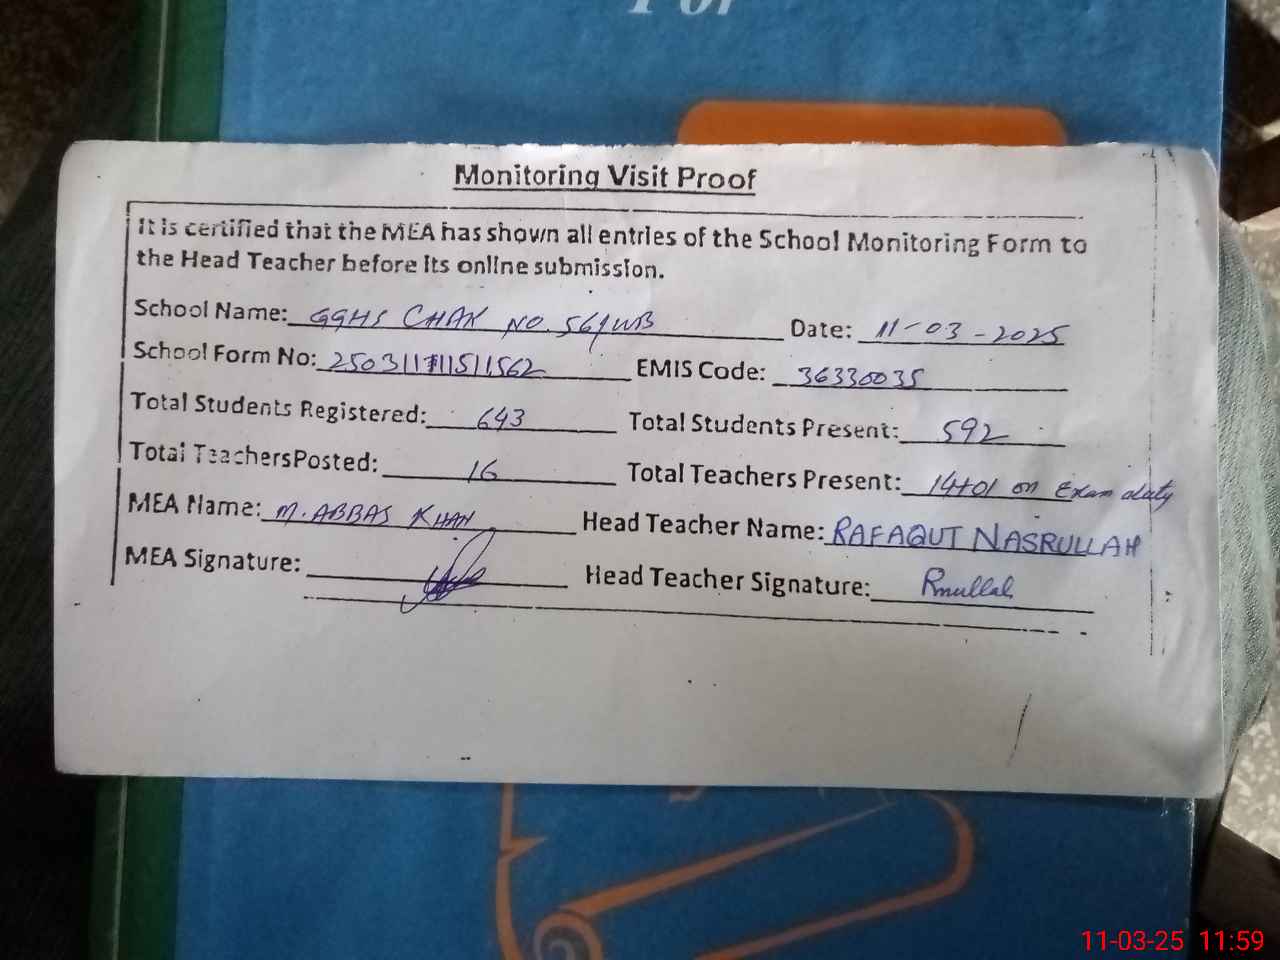 For
Monitoring Visit Proof
It is certified that the MEA has shown all entries of the School Monitoring Form to
the Head Teacher before its online submission.
School Name: GGHS CHAK NO. 561WB Date: 11-03-2025
School Form No: EMIS Code: 36330035
Total Students Registered: 643 Total Students Present: 592
Total Teachers Posted: 16 Total Teachers Present: 14+01 on Exam duty
MEA Name: M. ABBAS KHAN Head Teacher Name: RAFAQUT NASRULLAH
MEA Signature: Head Teacher Signature: Rnullah
11-03-25 11:59